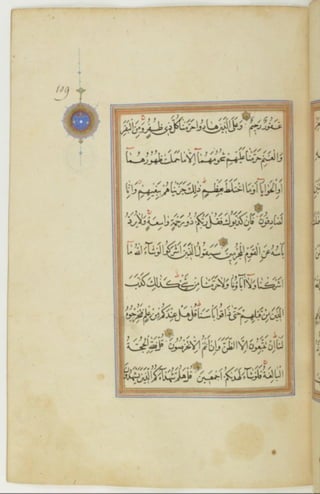 109
غفور رحيم وعلى الذين هادوا حرمنا كل ذي ظفر ومن البقر
والغنم حرمنا عليهم شحومهما الا ما حملت ظهورهما
او الحوايا او ما اختلط بعظم ذلك جزيناهم ببغيهم وانا
لصادقون فان كذبوك فقل ربكم ذو رحمة واسعة ولا يرد
بأسه عن القوم المجرمين سيقول الذين اشركوا لو شاء الله ما
اشركنا ولا آباؤنا ولا حرمنا من شيء كذلك كذب
الذين من قبلهم حتى ذاقوا بأسنا قل هل عندكم من علم فتخرجوه
لنا ان تتبعون الا الظن وان انتم الا تخرصون قل فلله الحجة
البالغة فلو شاء لهداكم اجمعين قل هلم شهداءكم الذين يشهدون